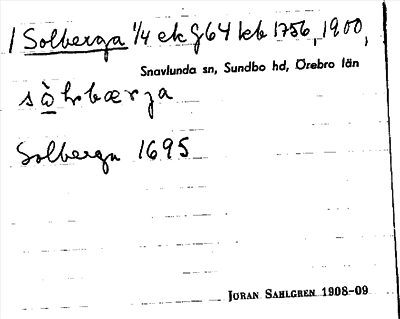 1 Solberga 1/4 ek G64 keb 1756, 1900,
Snavlunda sn, Sundbo hd, Örebro län
Solberga 1695
JÖRAN SAHLGREN 1908-09